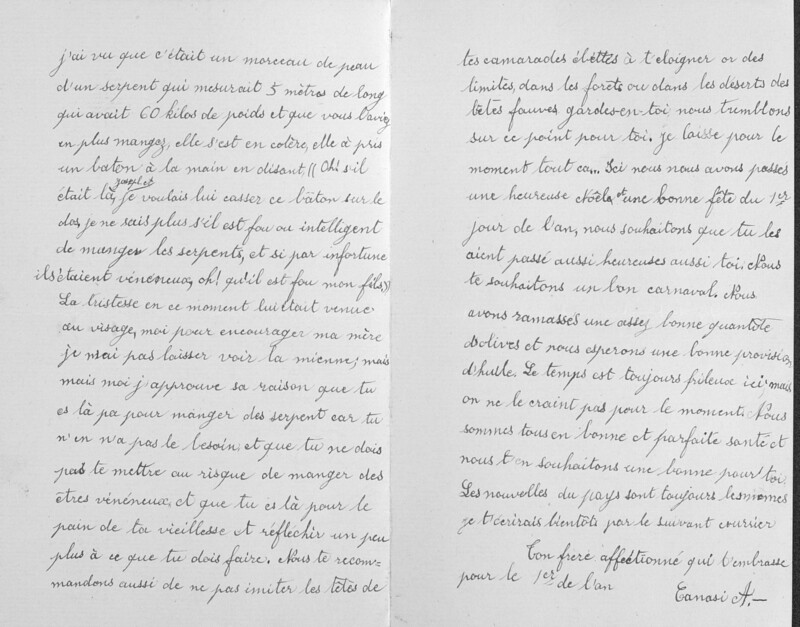 j'ai vu que c'était un morceau de peau
d'un serpent qui mesurait 5 mètres de long
qui avait 60 kilos de poids et que vous l'aviez
en plus mangez, elle s'est en colère, elle à pris
un baton à la main en disant, (( Oh! s'il
joseph et
était là, je voulais lui casser ce bâton sur le
dos, je ne sais plus s'il est fou ou intelligent
de manger les serpents, et si par infortune
ils étaient vénéneux, oh! qu'il est fou mon fils))
La tristesse en ce moment lui était venue
au visage, moi pour encourager ma mère
je n'ai pas laisser voir la mienne; mais
mais moi j'approuve sa raison que tu
es là pa pour manger des serpent car tu
n'en n'a pas le besoin; et que tu ne dois
pas te mettre au risque de manger des
etres vénéneux, et que tu es là pour le
pain de ta vieillesse et réfléchir un peu
plus à ce que tu dois faire. Nous te recom-
mandons aussi de ne pas imiter les têtes de
tes camarades à t'eloigner or des
limites, dans les forets ou dans les déserts des
bêtes fauves gardes-en-toi nous tremblons
sur ce point pour toi. je laisse pour le
moment tout ca... Ici nous nous avons passés
une heureuse Noëla, et une bonne fête du 1er
jour de l'an, nous souhaitons que tu les
aient passé aussi heureuses aussi toi. Nous
te souhaitons un bon carnaval. Nous
avons ramassés une assez bonne quantôte
d'olives et nous esperons une bonne provision
d'huble. Le temps est toujours frileux ici mais
on ne le craint pas pour le moment. Nous
sommes tous en bonne et parfaite santé et
nous t'en souhaitons une bonne pour toi.
Les nouvelles du pays sont toujours les mêmes
je t'écrirais bientôt par le suivant courrier
Ton frere affectionné qui t'embrasse
pour le 1er de l'an
Tanasi A.—